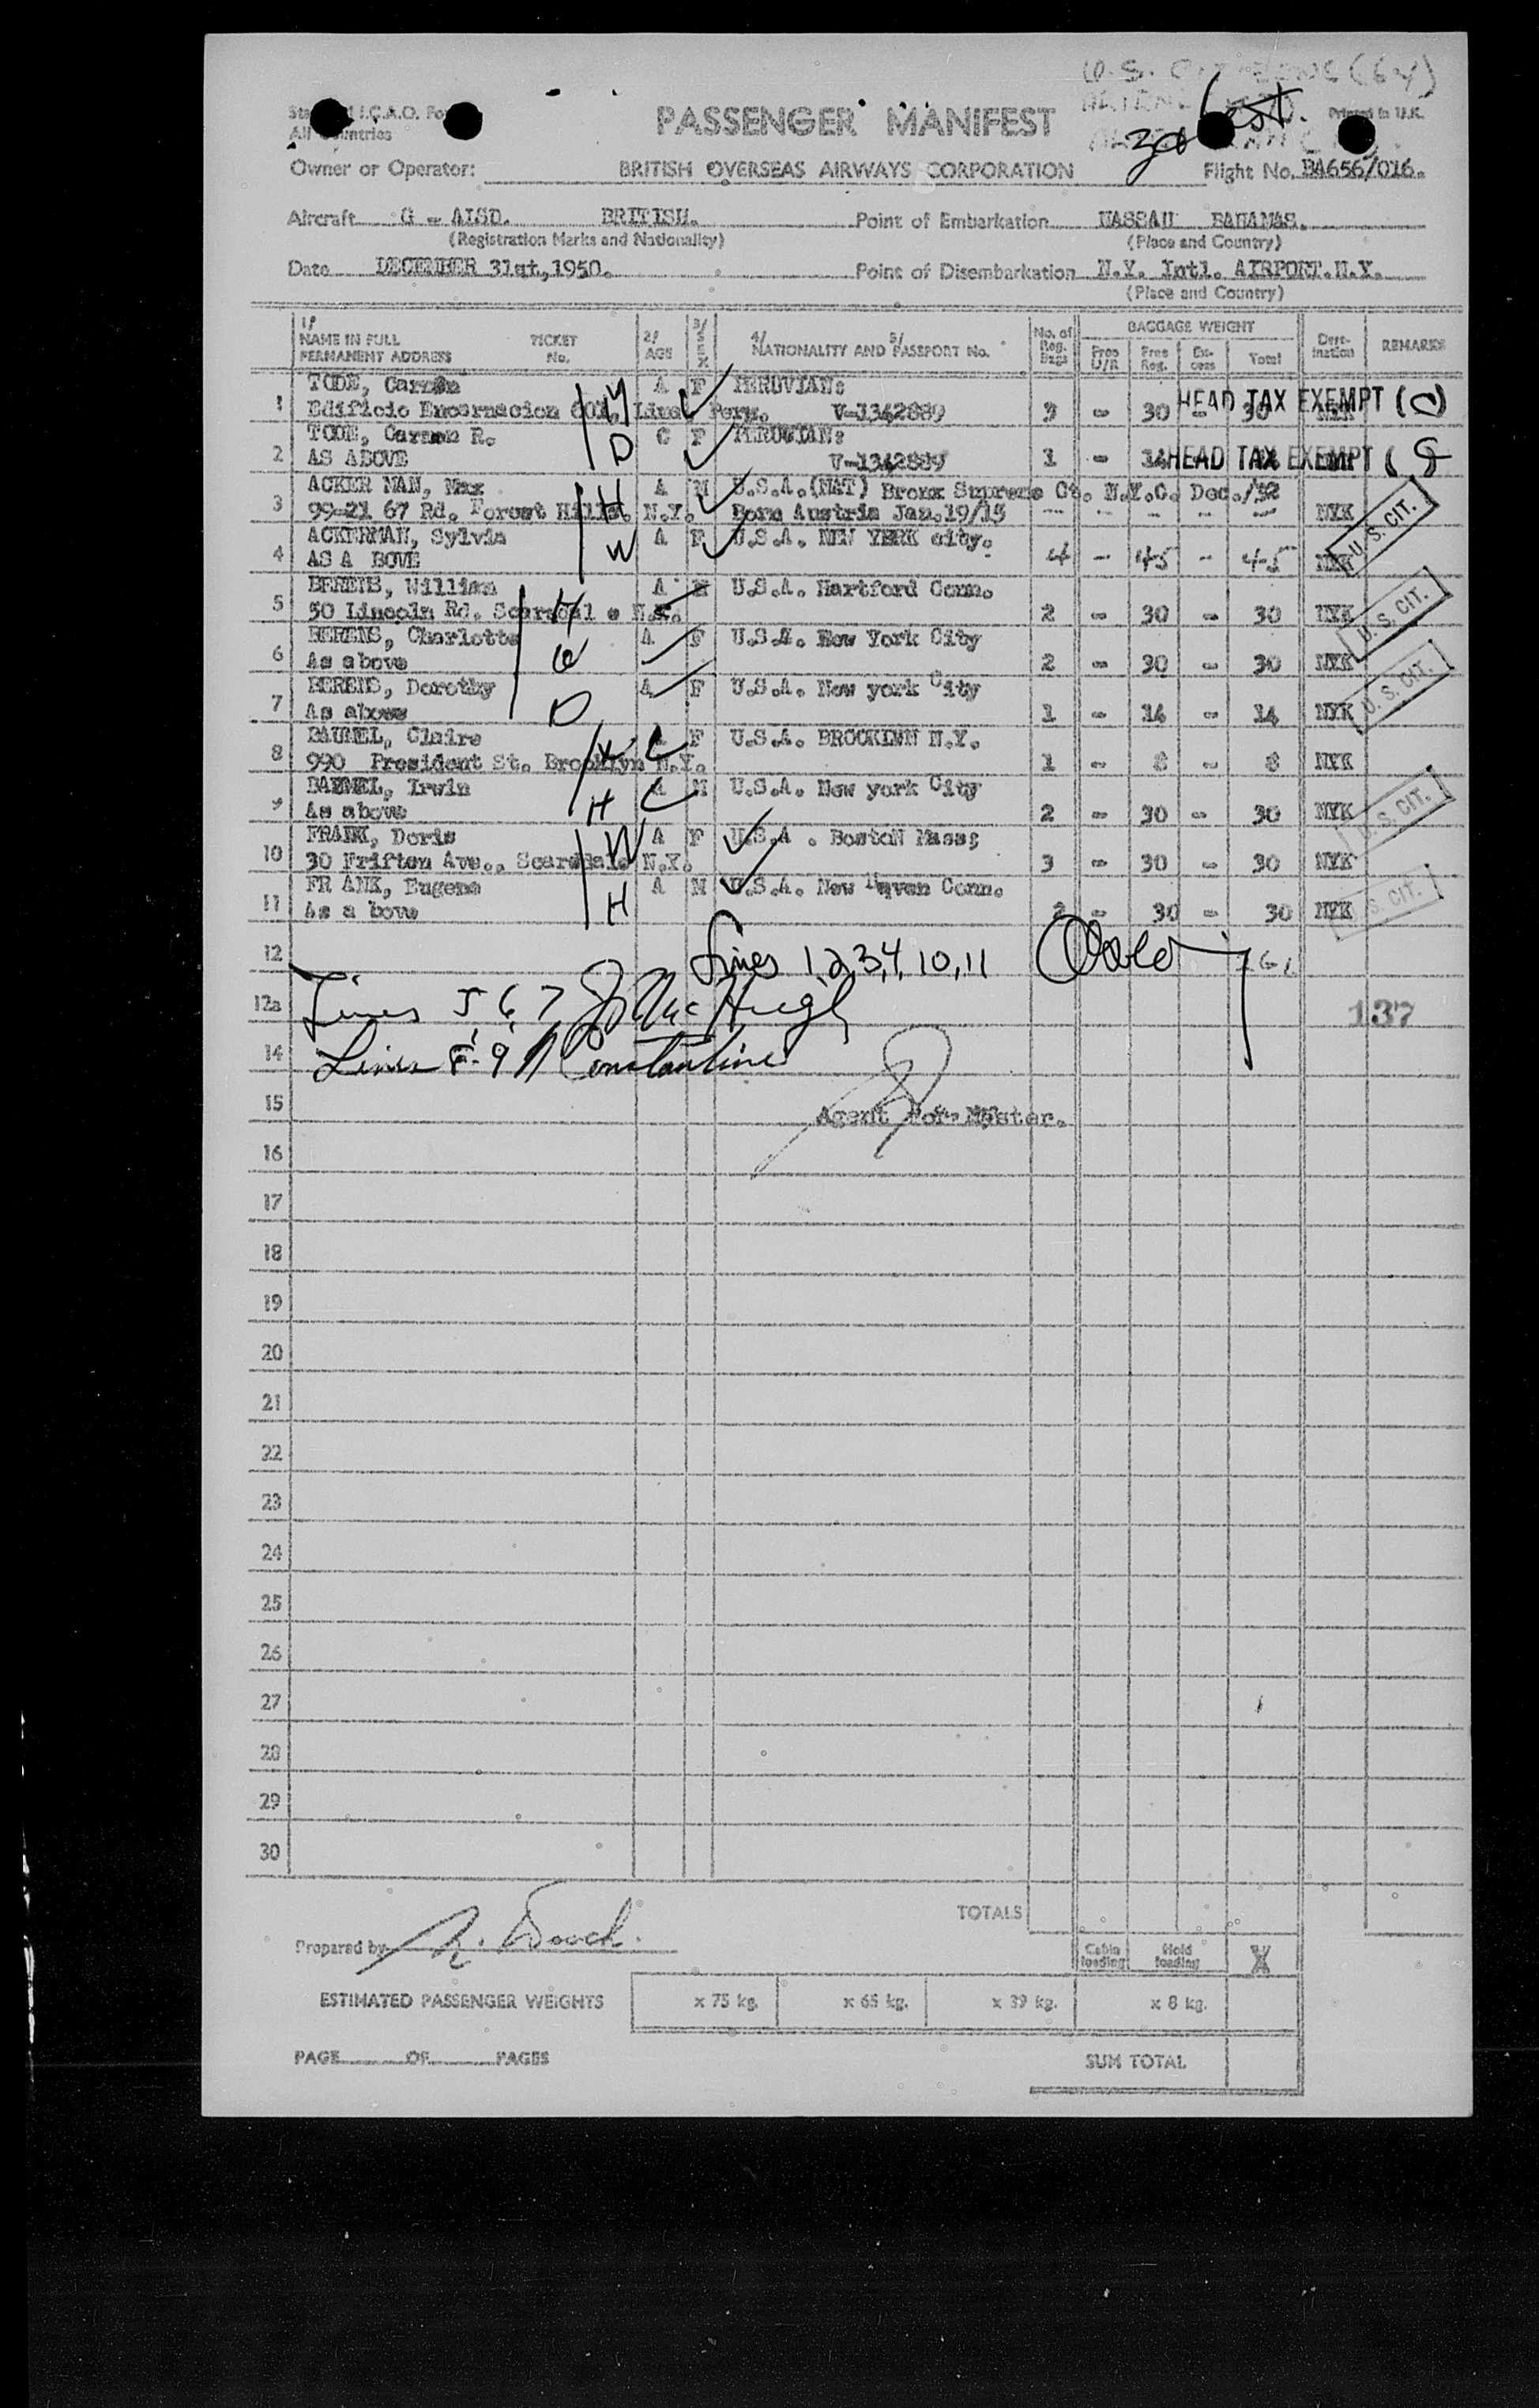 U.S. CITIZENS (64)
PASSENGER MANIFEST
Printed in U.K.
All Countries
Owner or Operator: BRITISH OVERSEAS AIRWAYS CORPORATION Flight No. BA656/016.
Aircraft G - ALSD. BRITISH. Point of Embarkation NASSAU BAHAMAS.
(Registration Marks and Nationality) (Place and Country)
Date DECEMBER 31st,1950. Point of Disembarkation N.Y. Intl. AIRPORT.N.Y.
(Place and Country)
1/ NAME IN FULL PERMANENT ADDRESS TICKET No. 2/ AGE 3/ SEX 4/ 5/ NATIONALITY AND PASSPORT No. No. of Reg. Bags BAGGAGE WEIGHT Free U/R Free Reg. Ex-cess Total Dest-ination REMARKS
1 TODE, Carmen A F PERUVIAN:
Edificio Encarnacion 601, Lima Peru. V-1342889 3 - 30 - 30 HEAD TAX EXEMPT (C)
2 TODE, Carmen R. D C F PERUVIAN:
AS ABOVE V-1342889 1 - 14 HEAD TAX EXEMPT
3 ACKER MAN, Max H A M U.S.A.(NAT) Bronx Supreme Ct. N.Y.C. Dec./32
99-21 67 Rd. Forest Hills. N.Y. Born Austria Jan.19/15 -- - -- - -- NYK
4 ACKERMAN, Sylvia W A F U.S.A. NEW YERK city.
AS A BOVE 4 - 45 - 45 NYK U. S. CIT.
5 BERENS, William H A M U.S.A. Hartford Conn.
50 Lincoln Rd. Scarsdal e N.Y. 2 - 30 - 30 NYK U. S. CIT.
6 BERENS, Charlotte W A F U.S.A. New York City
As above 2 - 30 - 30 NYK
7 BERENS, Dorothy D A F U.S.A. New york City
As above 1 - 14 - 14 NYK U. S. CIT.
8 BAUMEL, Claire W A F U.S.A. BROOKLNN N.Y.
990 President St. Brooklyn N.Y. 1 - 8 - 8 NYK
9 BAUMEL, Irwin H A M U.S.A. New york City
As above 2 - 30 - 30 NYK U. S. CIT.
10 FRANK, Doris W A F U.S.A . BostoN Mass;
30 Friften Ave., Scarsdale N.Y. 3 - 30 - 30 NYK
11 FR ANK, Eugene H A M U.S.A. New Haven Conn.
As a bove 2 - 30 - 30 NYK U. S. CIT.
12 Lines 1,2,3,4, 10, 11
12a Lines 5 6, 7, McHugh 137
14 Lines 8-9 Constantine
15 Agent For Master.
16
17
18
19
20
21
22
23
24
25
26
27
28
29
30
TOTALS
Prepared by
Cabin loading Hold loading
ESTIMATED PASSENGER WEIGHTS x 75 kg. x 65 kg. x 39 kg. x 8 kg.
PAGE OF PAGES SUM TOTAL